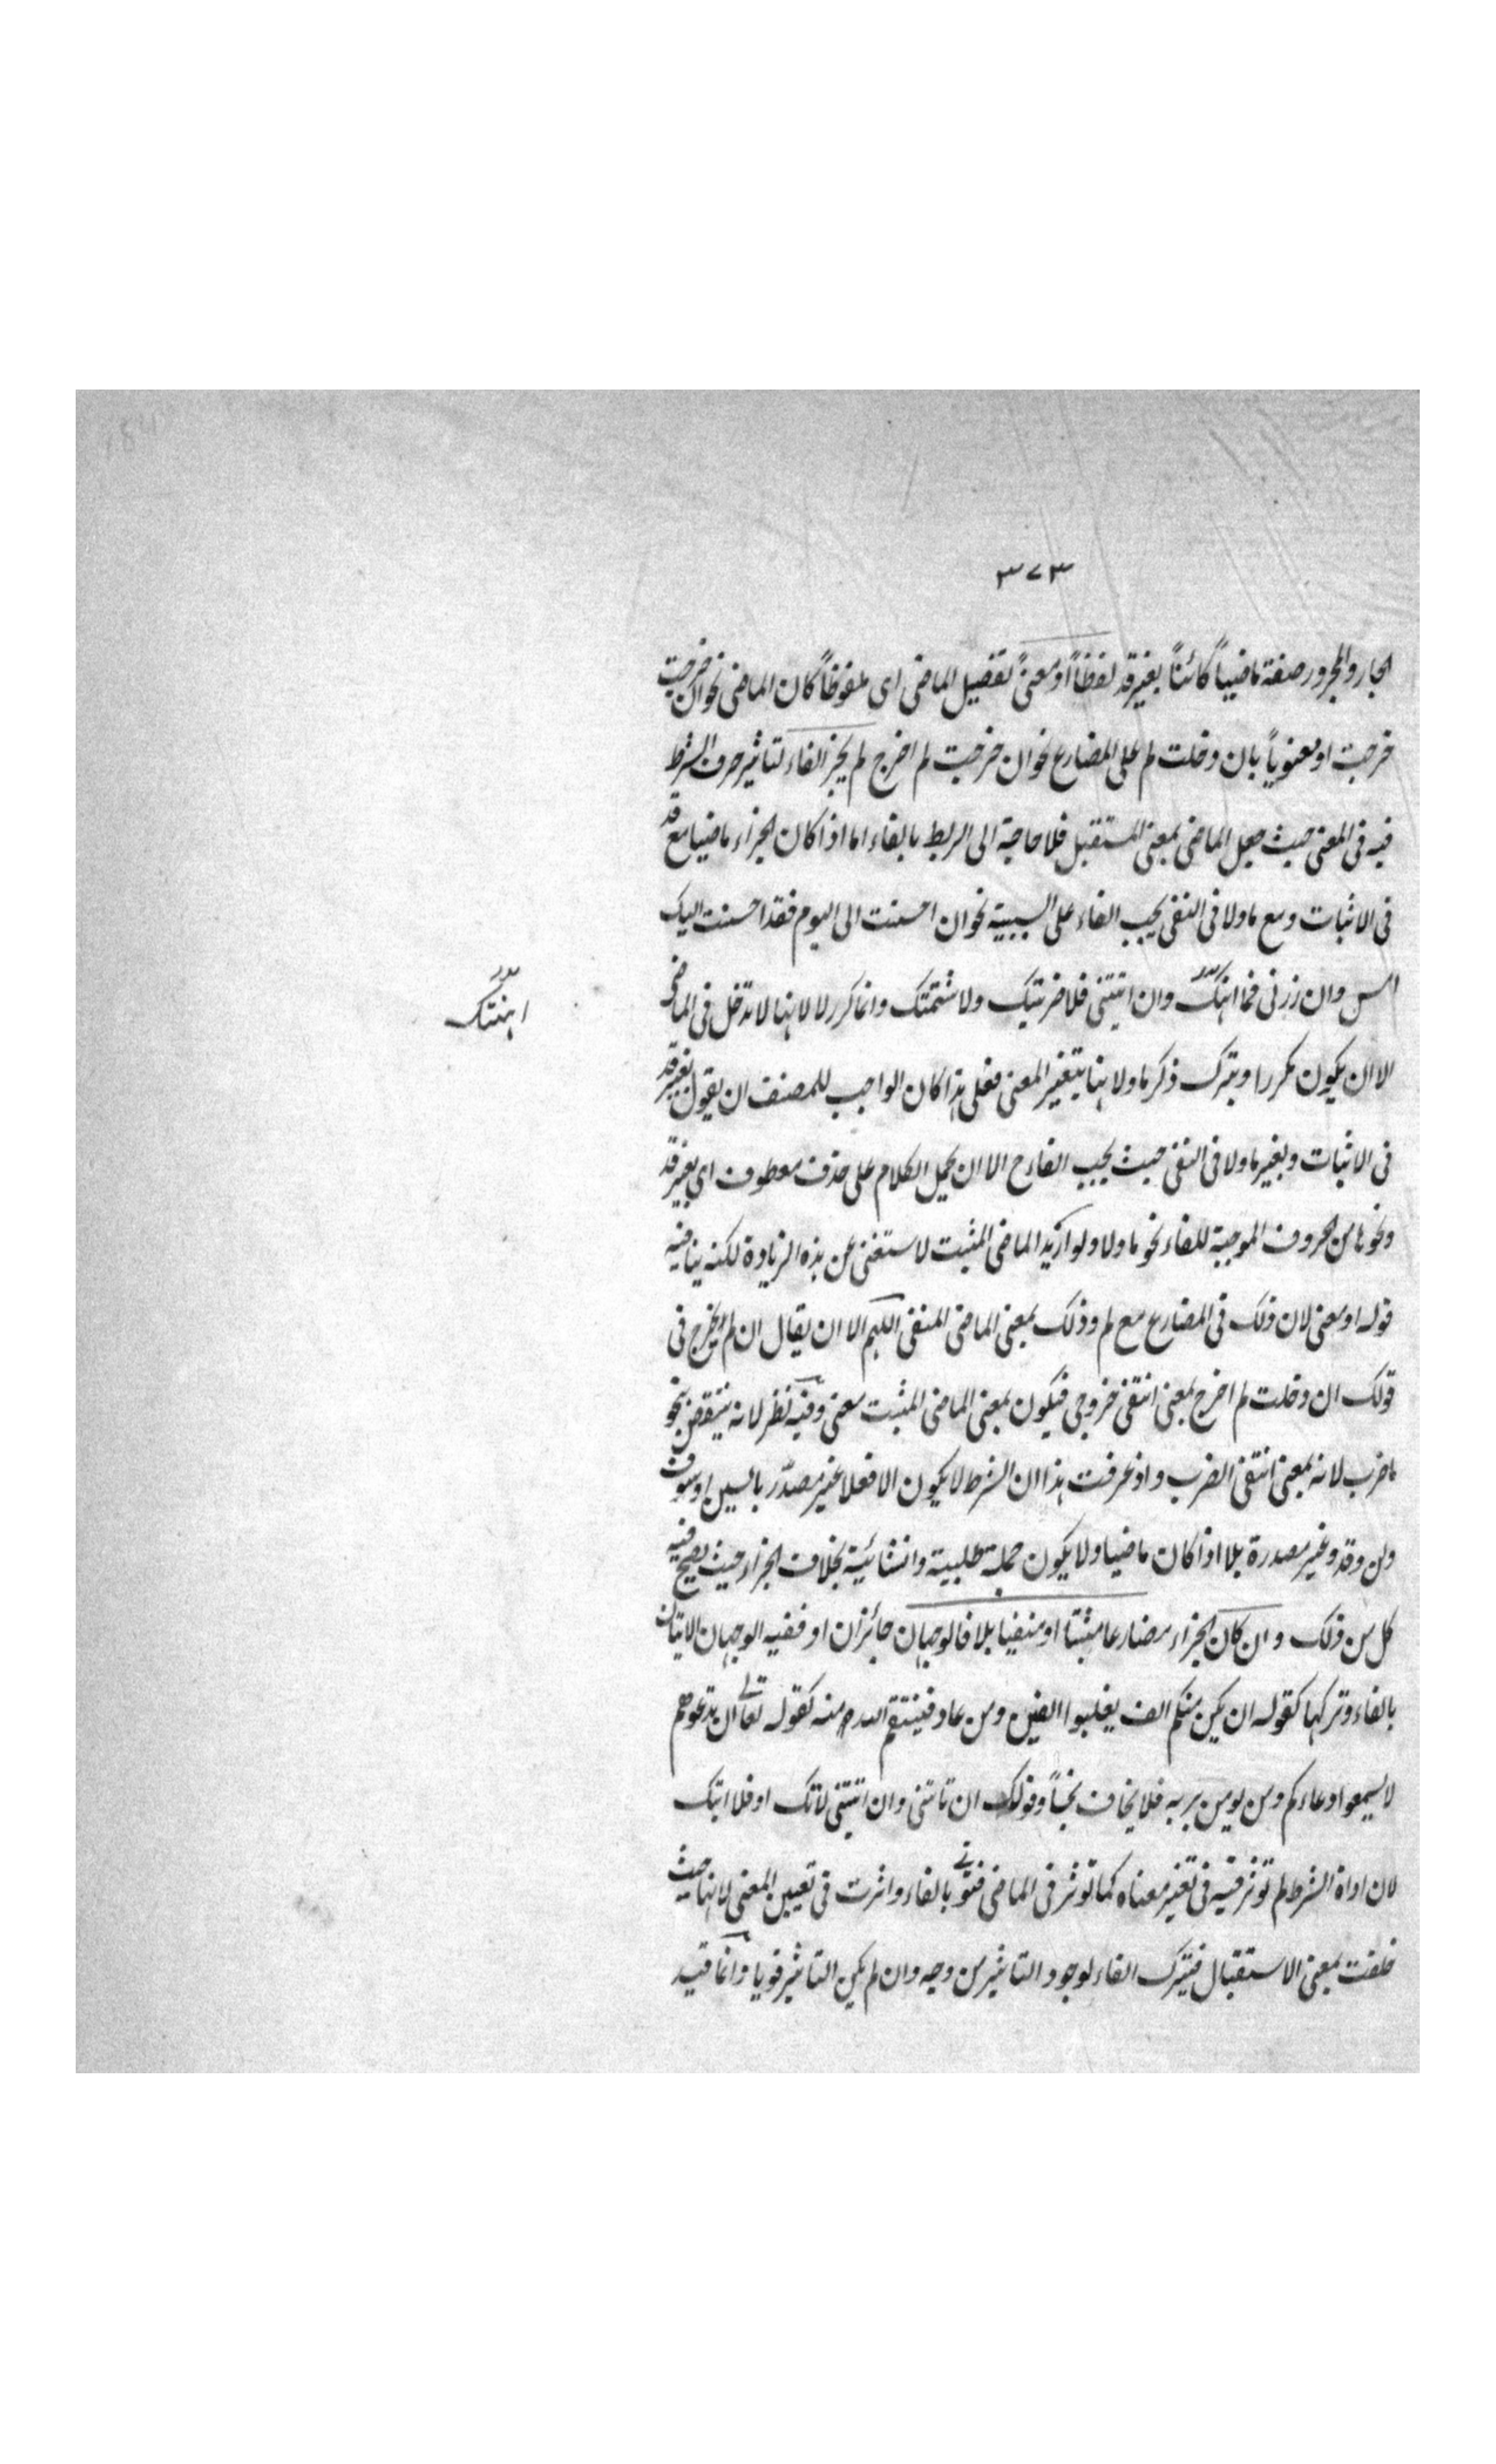 ٣٧٣
الجار والمجرور صفة ماضياً كائناً بغير قد لفظاً او معنىً تفصيل الماضى اى ملفوظاً كان الماضى نحو ان خرجت
خرجت او معنوياً بان دخلت لم على المضارع نحو ان خرجت لم اخرج لم يجز الفاء لتاثير حرف الشرط
فيه فى المعنى حيث جعل الماضى بمعنى المستقبل فلا حاجة الى الربط بالفاء اما اذا كان الجزاء ماضيا مع قد
فى الاثبات ومع ما ولا فى النفى يجب الفاء على السببية نحو ان احسنت الى اليوم فقد احسنت اليك
امس وان زرتنى فما اهنتك وان اتيتنى فلا ضربتك ولا شتمتك وانما كرر لا لانها لا تدخل فى الماضى
اهنتك
الا ان يكون مكررا وبترك ذكر ما ولا هنا يتغير المعنى فعلى هذا كان الواجب للمصنف ان يقول بغير قد
فى الاثبات وبغير ما ولا فى النفى حيث يجب الفاء ح الا ان يحمل الكلام على حذف معطوف اى بغير قد
ونحوها من الحروف الموجبة للفاء نحو ما ولا ولو اريد الماضى المثبت لاستغنى عن هذه الزيادة لكنه ينافيه
قوله او معنى لان ذلك فى المضارع مع لم وذلك بمعنى الماضى المنفى اللهم الا ان يقال ان لم اخرج فى
قولك ان دخلت لم اخرج بمعنى انتفى خروجى فيكون بمعنى الماضى المثبت معنى وفيه نظر لانه ينتقض بنحو
ما ضرب لانه بمعنى انتفى الضرب واذ عرفت هذا ان الشرط لا يكون الا فعلا غير مصدّر بالسين او سوف
ولن وقد وغير مصدرة بلا اذا كان ماضيا ولا يكون جملة طلبية وانشائية بخلاف الجزاء حيث يصح فيه
كل من ذلك وان كان الجزاء مضارعا مثبتا او منفيا بلا فالوجهان جائزان او ففيه الوجهان الاتيان
بالفاء وتركها كقوله ان يكن منكم الف يغلبوا الفين ومن عاد فينتقم الله منه كقوله تعالى ان تدعوهم
لا يسمعوا دعاءكم ومن يومن بربه فلا يخاف بخساً وقولك ان تاتنى وان اتيتنى لاتك او فلا اتيك
لان اداة الشرط لم تؤثر فيه فى تغير معناه كما تؤثر فى الماضى فتوتى بالفاء واثرت فى تعيين المعنى لانها حيث
خلصت بمعنى الاستقبال فيترك الفاء لوجود التاثير من وجه وان لم يكن التاثير قويا وانما قيد